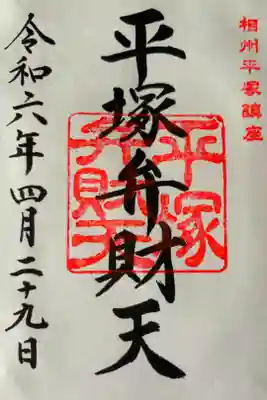 相州平塚鎮座
平塚弁財天
平塚
弁財天
令和六年四月二十九日